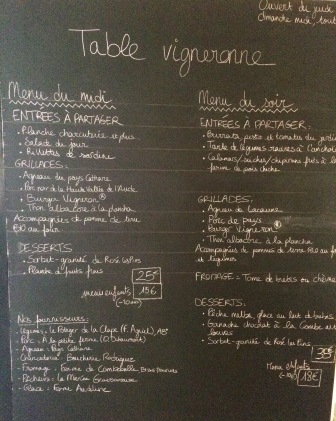 Ouvert du jeudi
dimanche midi, tout
Table vigneronne
Menu du midi
ENTRÉES À PARTAGER
• Planche charcuterie et plus
• Salade du jour
• Rillettes de sardine
GRILLADES
• Agneau du pays Cathare
• Porc noir de la Haute Vallée de l'Aude
• Burger Vigneron ®
• Thon albacore à la plancha
Accompagnées de pomme de terre
BIO au four
DESSERTS
• Sorbet-granité de Rosé
• Planche de fruits frais
25€
menu enfants 15€
(-10 ans)
Nos fournisseurs:
- Légumes: le Potager de la Clape
- Porc: A la petite ferme
- Agneau: Pays Cathare
- Charcuterie: Boucherie Rodriguez
- Fromage: Ferme de Combebelle
- Pêcheurs: la Marée Gruissanaise
- Glace:
Menu du soir
ENTRÉES À PARTAGER:
• Burrata, pesto et tomates du jardin
• Tarte de légumes
• Calamars/seiches/chipirons frits à la
farine de pois chiche
GRILLADES.
• Agneau de Lacaune
• Porc de pays
• Burger Vigneron ®
• Thon albacore à la plancha
Accompagnées de pommes de terre BIO au four
et légumes
FROMAGE = Tome de brebis ou chèvre
DESSERTS:
• Pêche melba, glace au lait de brebis
• Ganache chocolat à la
• Sorbet-granité de Rosé
38€
Menu enfants
(-10) 18€